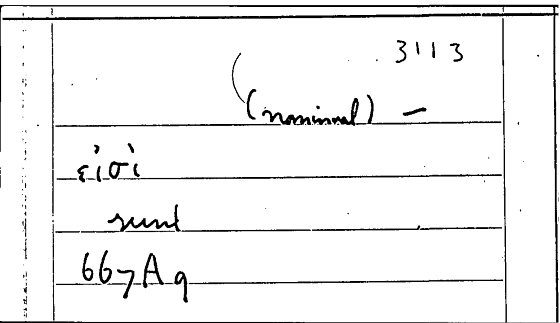 3113
(nominal) —
εἰσὶ
sunt
667A9